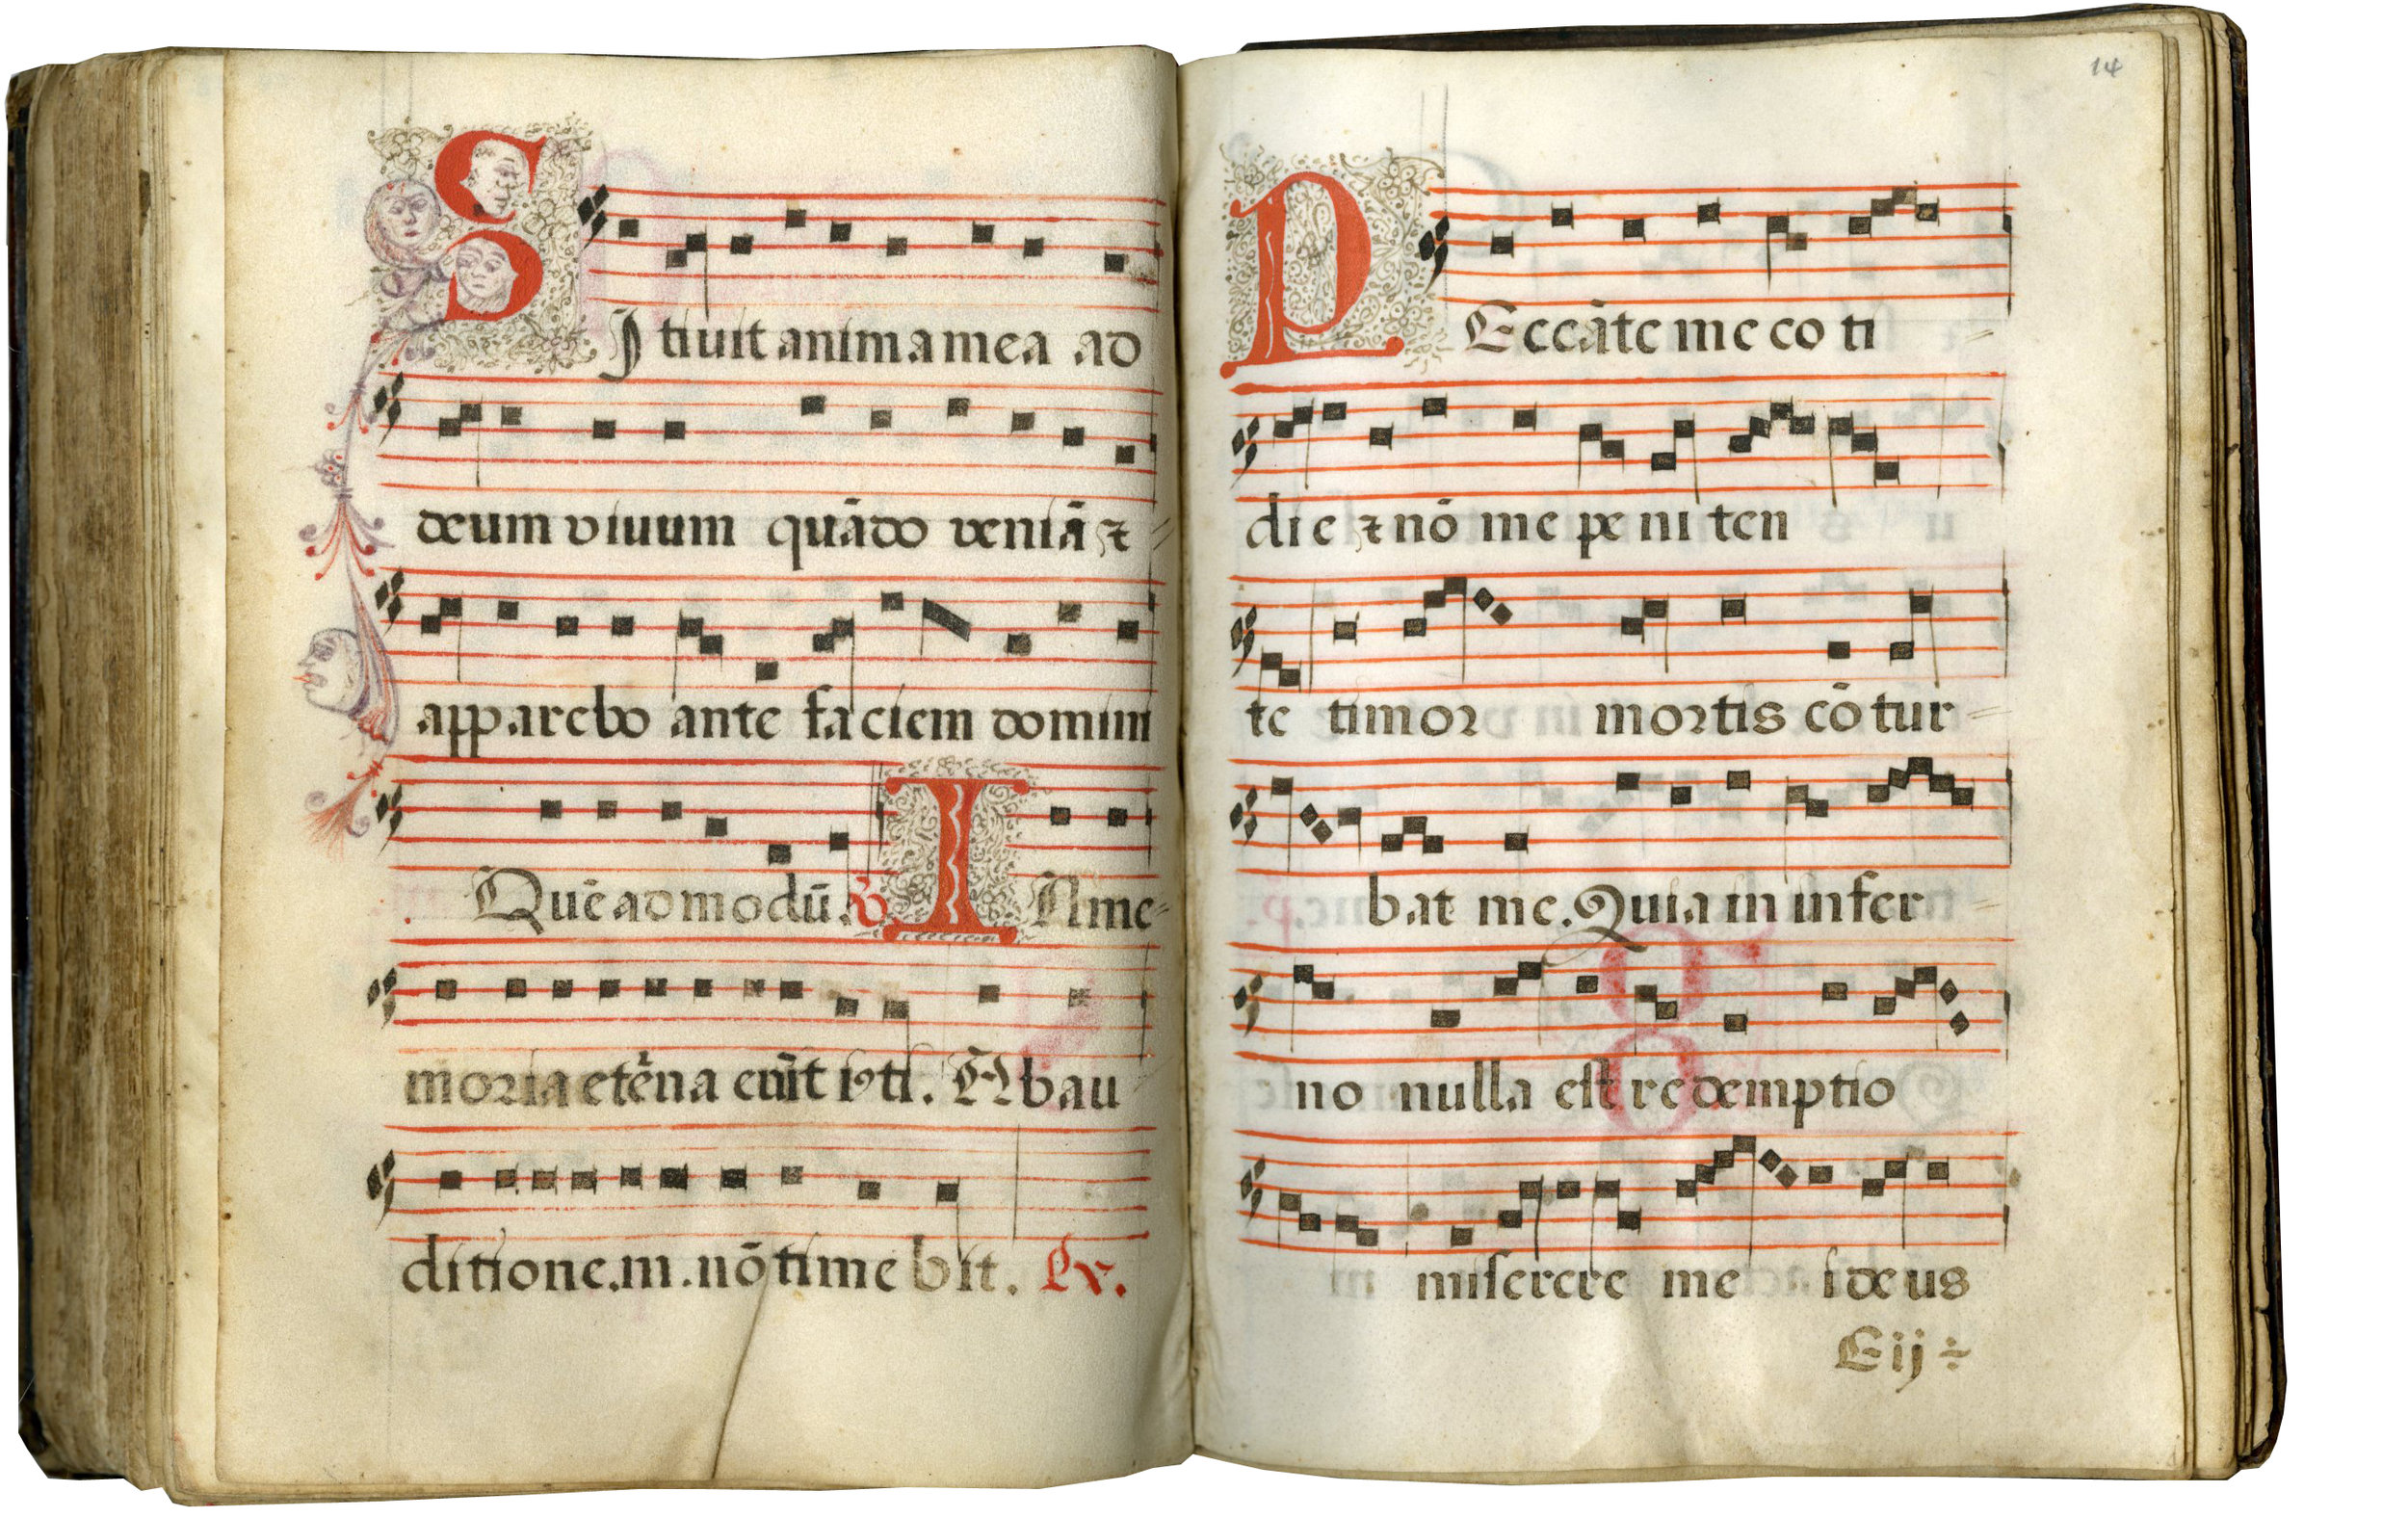 SI tiuit anima mea ad
deum viuum quãdo veniã ⁊
apparebo ante faciem domini
Quẽadmodũ. ℣ IN me
moria etẽna erũt iꝰti. Ab au
ditione .m. nõ timebit. Lx.
14
PEccãte me co ti
die ⁊ nõ me pe ni ten
te timor mortis cõ tur
bat me. Quia in infer
no nulla est redemptio
miserere me i deus
Eij